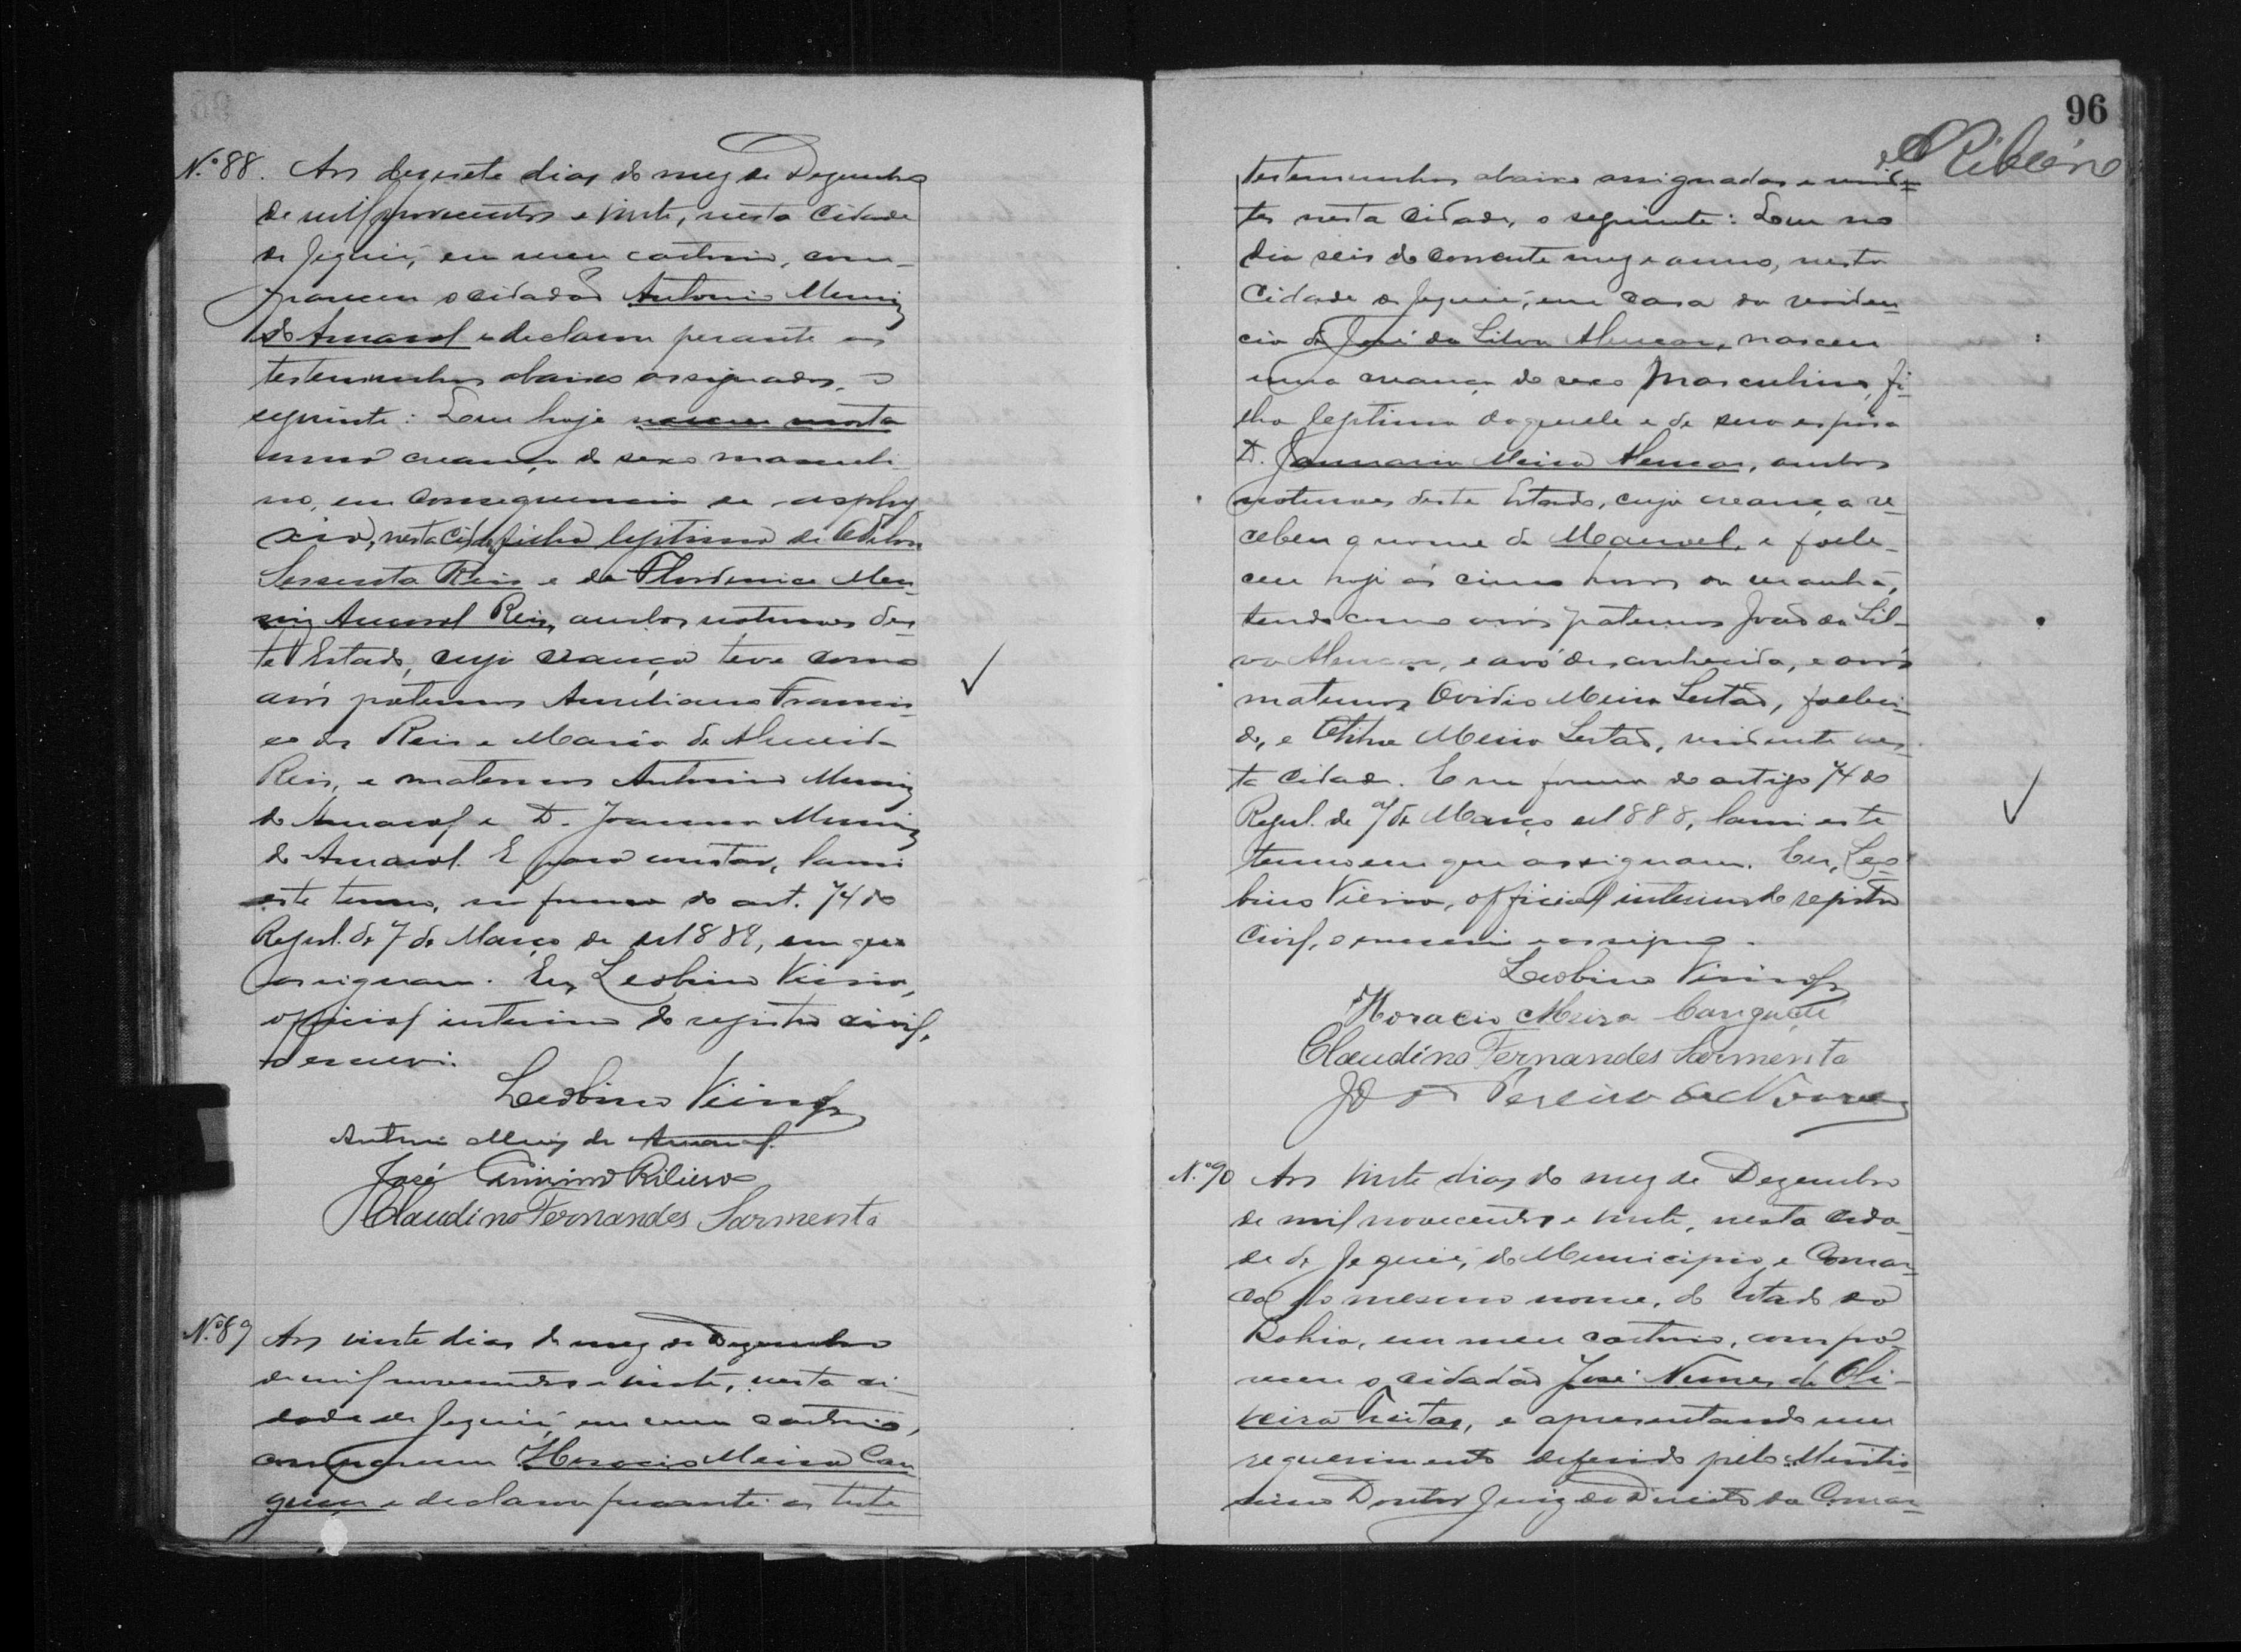 Nº 88. Aos desesete dias do mez de Dezembro
de mil novecentos e vinte, nesta cidade
de Jequié, em meu cartorio, com-
pareceu o cidadão Antonio Muniz
do Amaral e declarou perante as
testemunhas abaixo assignadas, o
seguinte: Que hoje nasceu morta
uma creança do sexo masculi-
no, em consequencia de asphy-
xia, nesta cidade, filha legitima de Odilon
Sessenta Reis e de Mu-
niz Amaral Reis, ambos naturaes des-
te Estado, cuja creança teve como
avós paternos Aureliano Francis-
co dos Reis e Maria de Almeida
Reis, e maternos Antonio Muniz
do Amaral e D. Joanna Muniz
do Amaral. E para constar, lavrei
este termo, na forma do art. 74 do
Regul. de 7 de Março de 188, em que
assignam. Eu, Leobino Vieira,
official interino do registro civil,
o escrevi.
Leobino Vieira
Antonio Muniz do Amaral.
José Ribeiro
Claudino Fernandes Sarmento
Nº 89 Aos vinte dias do mez de Dezembro
de mil novecentos e vinte, nesta ci-
dade de Jequié, em meu cartorio,
compareceu Horacio Meira Can-
guçu e declarou perante as teste
96
Ribeiro
testemunhas abaixo assignadas e residen-
tes nesta cidade, o seguinte: Que no
dia seis do corrente mez e anno, nesta
Cidade de Jequié, em casa da residen-
cia de José da Silva Alencar, nasceu
uma creança do sexo masculino, fi-
lha legitima daquele e de sua esposa
D. Januaria Meira Alencar, ambos
naturaes deste Estado, cuja creança re-
cebeu o nome de Manoel, e falle-
ceu hoje ás cinco horas da manhã,
tendo como avós paternos João da Sil-
va Alencar, e avó desconhecida, e avós
maternos Ovidio Meira Sertão, falleci-
do, e Meira Sertão, residente nes-
ta cidade. E na forma do artigo 74 do
Regul. de 7 de Março de 1888, lavrei este
termo em que assignam. Eu, Leo-
bino Vieira, official interino do registro
Civil, o escrevi e assigno.
Leobino Vieira
Horacio Meira Canguçú
Claudino Fernandes Sarmento
João Pereira de Novaes
Nº 90 Aos vinte dias do mez de Dezembro
de mil novecentos e vinte, nesta cida-
de de Jequié, do Municipio e Comar-
ca do mesmo nome, do Estado da
Bahia, em meu cartorio, compa-
receu o cidadão José Nunes de Oli-
veira Freitas, e apresentando um
requerimento deferido pelo Meritis-
simo Doutor Juiz de Direito da Comar-